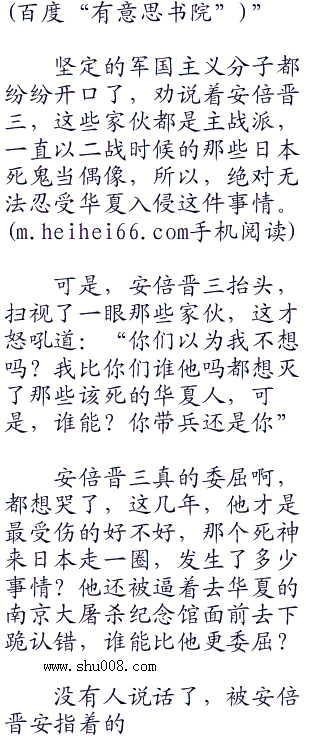 (百度“有意思书院”)”
坚定的军国主义分子都
纷纷开口了，劝说着安倍晋
三，这些家伙都是主战派，
一直以二战时候的那些日本
死鬼当偶像，所以，绝对无
法忍受华夏入侵这件事情。
(m.heihei66.com手机阅读)
可是，安倍晋三抬头，
扫视了一眼那些家伙，这才
怒吼道：“你们以为我不想
吗？我比你们谁他吗都想灭
了那些该死的华夏人，可
是，谁能？你带兵还是你”
安倍晋三真的委屈啊，
都想哭了，这几年，他才是
最受伤的好不好，那个死神
来日本走一圈，发生了多少
事情？他还被逼着去华夏的
南京大屠杀纪念馆面前去下
跪认错，谁能比他更委屈？
www.shu008.com
没有人说话了，被安倍
晋安指着的